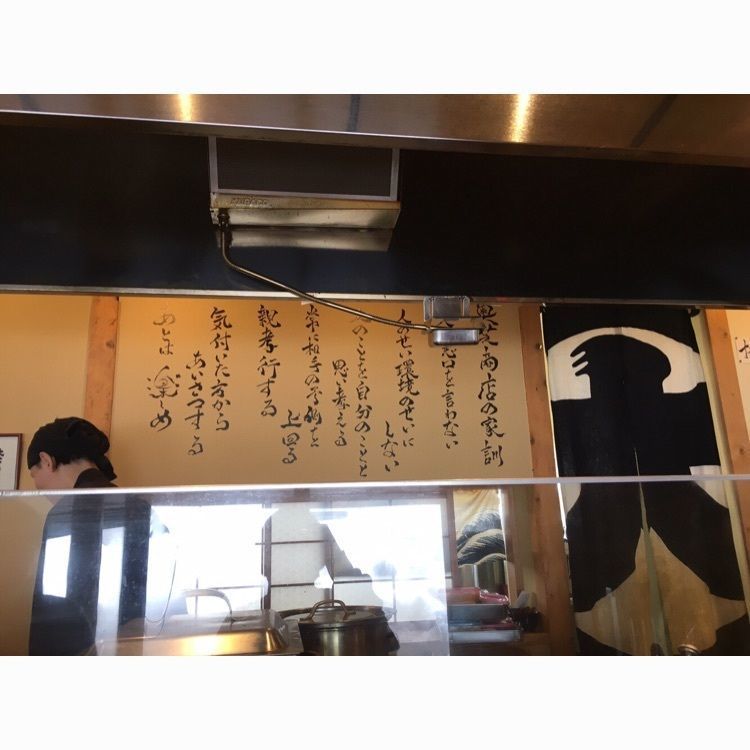 奥芝商店の家訓
悪口を言わない
人のせい環境のせいに
しない
のことを自分のことと
思い考える
常に相手の予想を
上回る
親孝行する
気付いた方から
あいさつする
あとは楽しめ